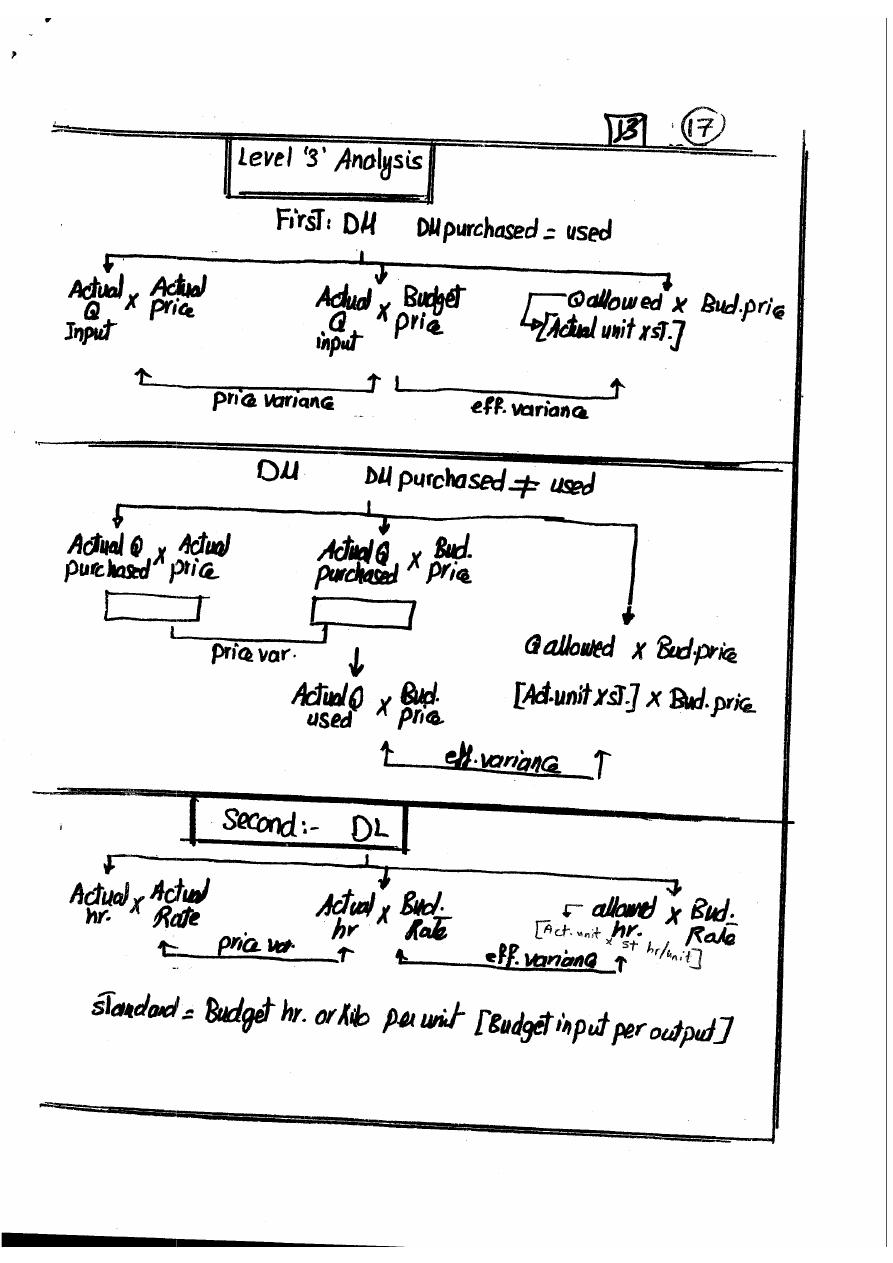 13 17
Level '3' Analysis
First: DM DM purchased = used
Actual Q Input x Actual price
Actual Q input x Budget price
Q allowed x Bud.price
[Actual unit x st.]
price variance
eff. variance
DM DM purchased ≠ used
Actual Q purchased x Actual price
Actual Q purchased x Bud. price
price var.
Q allowed x Bud.price
Actual Q used x Bud. price
[Act.unit x st.] x Bud. price
eff. variance
Second:- DL
Actual hr. x Actual Rate
Actual hr x Bud. Rate
allowed hr. x Bud. Rate
[Act. unit x st hr/unit]
price var.
eff. variance
standard = Budget hr. or kilo per unit [Budget input per output]